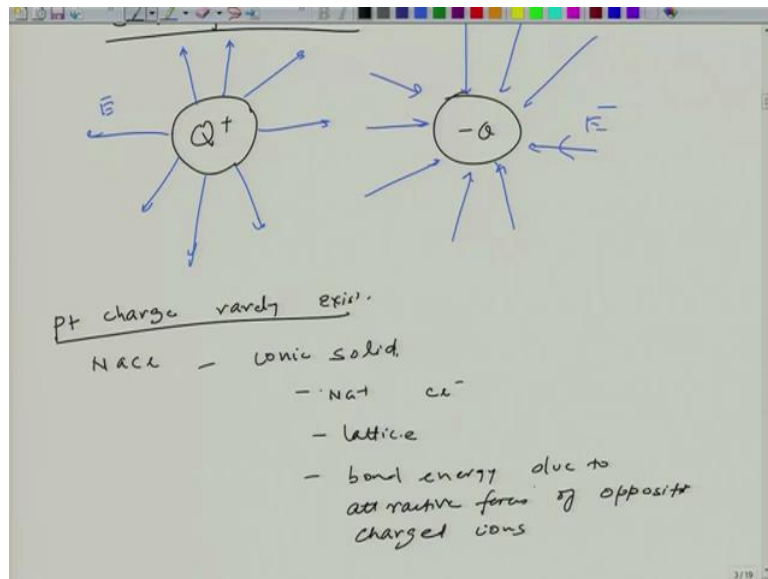 E
Q+
-Q
E
pt charge rarely exist.
NaCl - ionic solid.
- Na+ Cl-
- lattice
- bond energy due to
attractive force of opposite
charged ions
3/19